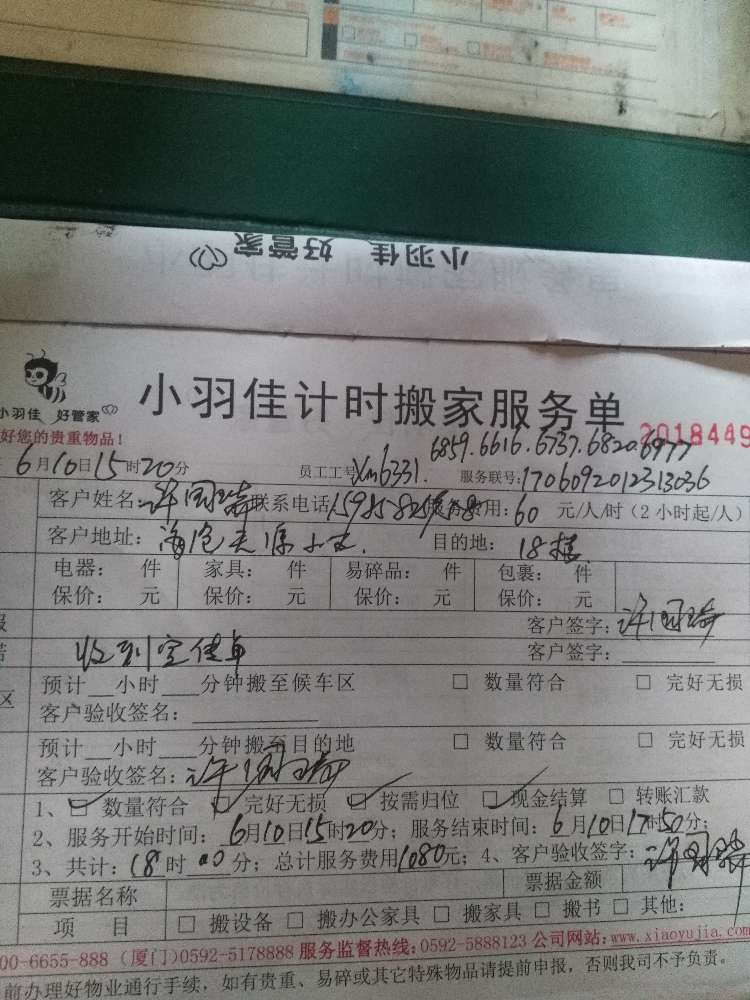 小羽佳 好管家
小羽佳 好管家
小羽佳计时搬家服务单
2018449
好您的贵重物品!
6859.6616.6737.6820.6977
6月10日15时20分 员工工号:Xm6331. 服务联号:1706092012313036
客户姓名:许国瑞 联系电话: 服务费用:60 元/人/时(2小时起/人)
客户地址: 目的地:18楼
电器: 件 家具: 件 易碎品: 件 包裹: 件
保价: 元 保价: 元 保价: 元 保价: 元
客户签字:许国瑞
收到宝佳单
客户签字:
区 预计__小时___分钟搬至候车区 □ 数量符合 □ 完好无损
客户验收签名:
预计__小时___分钟搬至目的地 □ 数量符合 □ 完好无损
客户验收签名:许国瑞
1、☑ 数量符合 ☑ 完好无损 ☑ 按需归位 ☑ 现金结算 □ 转账汇款
2、服务开始时间:6月10日15时20分;服务结束时间:6月10日17时50分;
3、共计:18时00分;总计服务费用1080元;4、客户验收签字:许国瑞
票据名称 票据金额
项 目 □ 搬设备 □ 搬办公家具 □ 搬家具 □ 搬书 □ 其他:
00-6655-888 (厦门)0592-5178888 服务监督热线:0592-5888123 公司网站:www.xiaoyujia.com
前办理好物业通行手续,如有贵重、易碎或其它特殊物品请提前申报,否则我司不予负责。